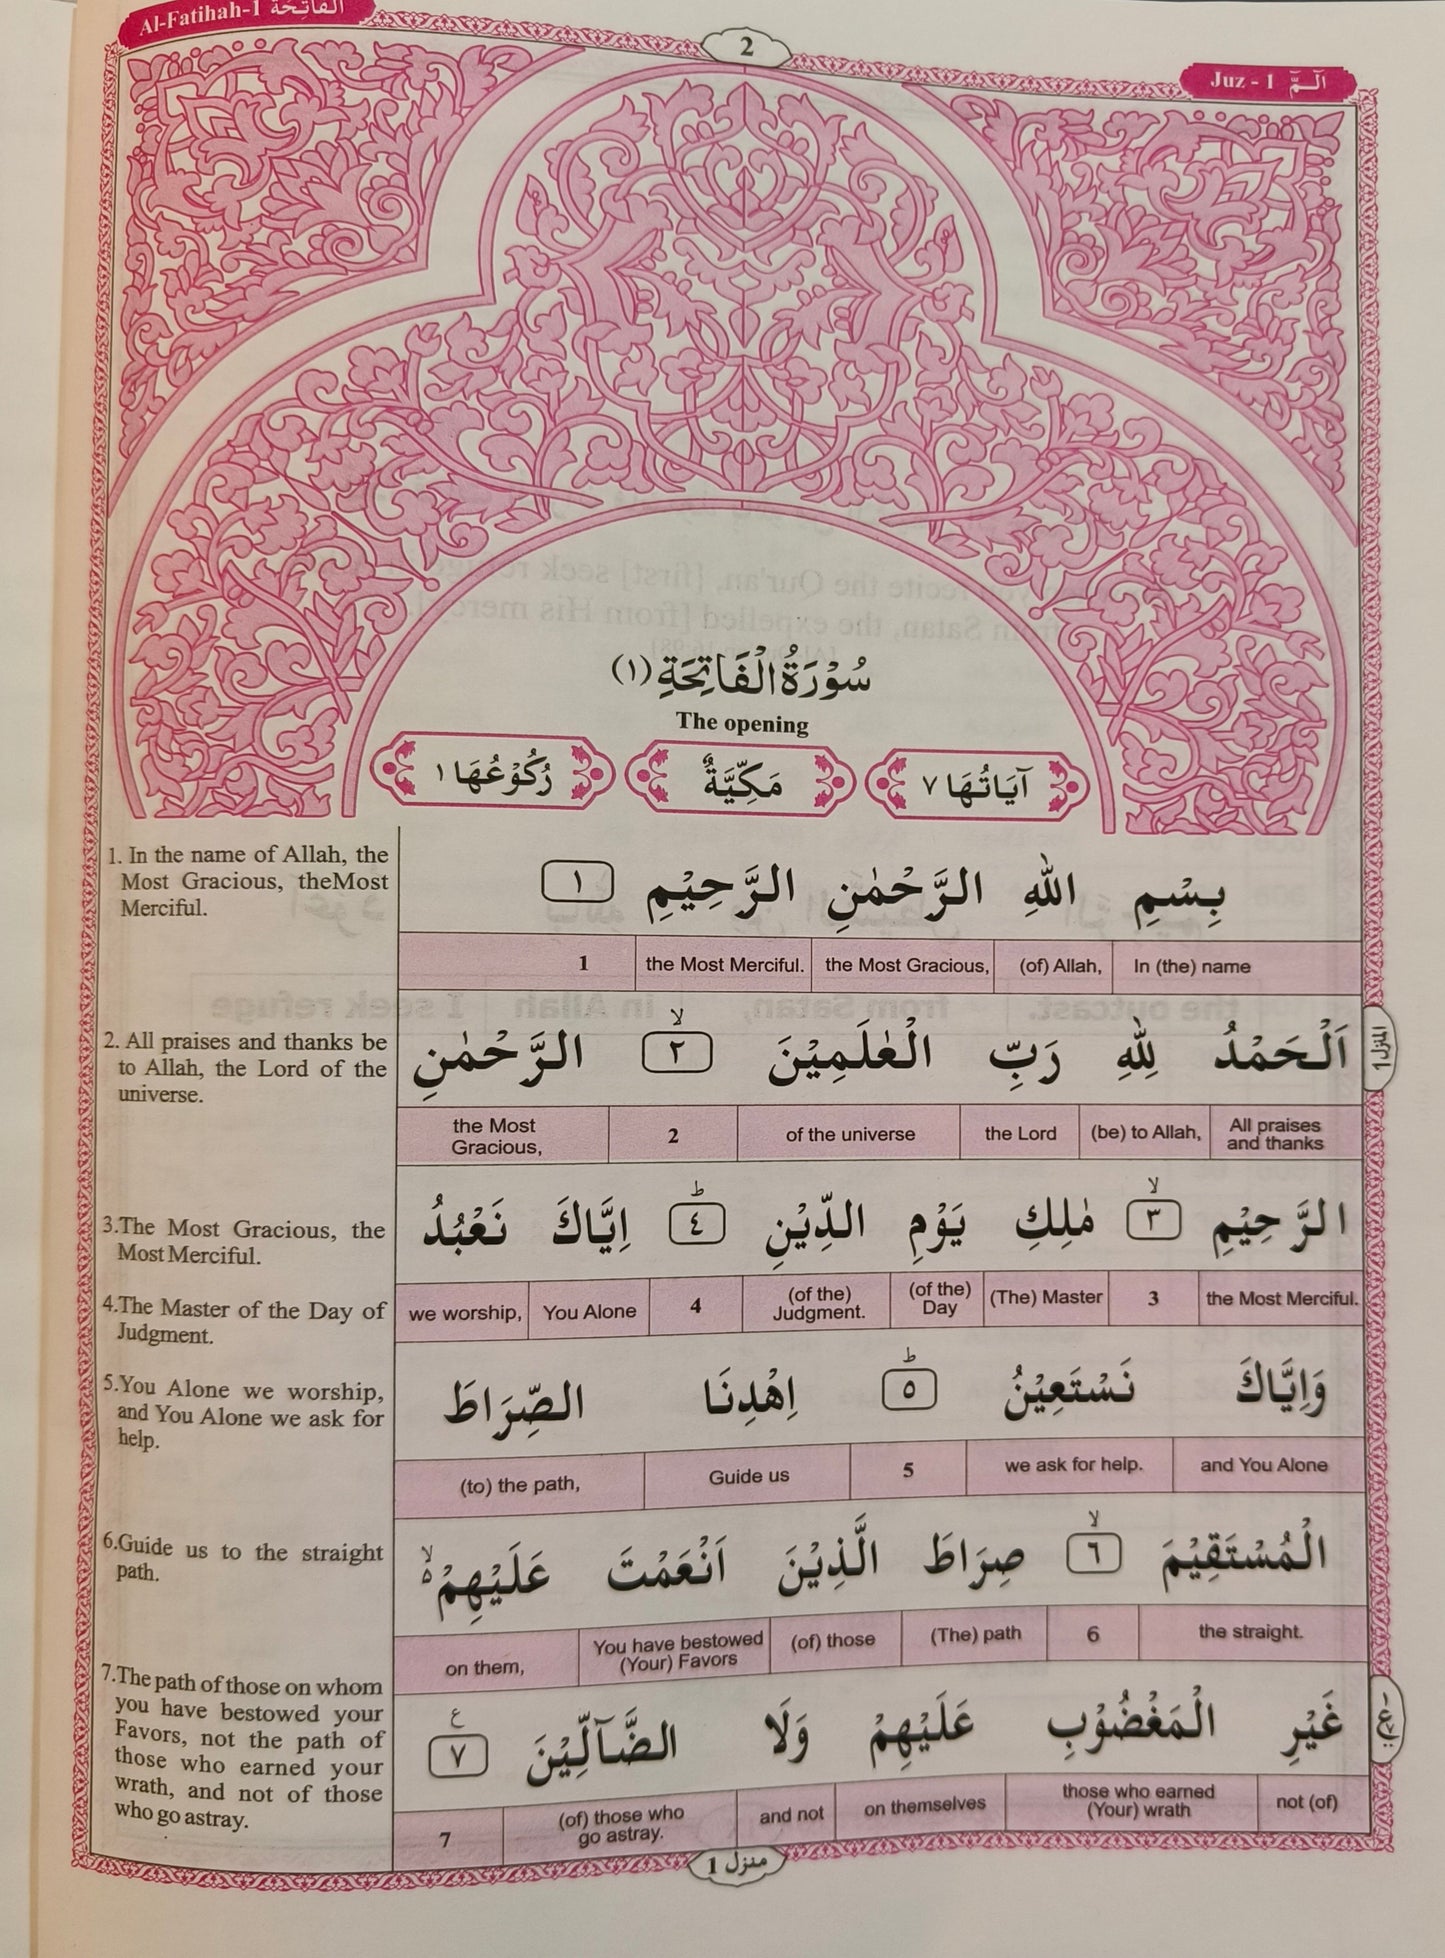 Al-Fatihah-1 الفاتحة
2
Juz - 1 الٓـمّٓ
سُوْرَةُ الْفَاتِحَةِ (١)
The opening
آيَاتُهَا ٧
مَكِّيَّةٌ
رُكُوْعُهَا ١
1. In the name of Allah, the
Most Gracious, theMost
Merciful.
2. All praises and thanks be
to Allah, the Lord of the
universe.
3.The Most Gracious, the
Most Merciful.
4.The Master of the Day of
Judgment.
5.You Alone we worship,
and You Alone we ask for
help.
6.Guide us to the straight
path.
7.The path of those on whom
you have bestowed your
Favors, not the path of
those who earned your
wrath, and not of those
who go astray.
بِسْمِ اللهِ الرَّحْمٰنِ الرَّحِيْمِ ١
In (the) name (of) Allah, the Most Gracious, the Most Merciful. 1
اَلْحَمْدُ لِلهِ رَبِّ الْعٰلَمِيْنَ ٢ۙ الرَّحْمٰنِ
All praises and thanks (be) to Allah, the Lord of the universe 2 the Most Gracious,
الرَّحِيْمِ ٣ۙ مٰلِكِ يَوْمِ الدِّيْنِ ٤ؕ اِيَّاكَ نَعْبُدُ
the Most Merciful. 3 (The) Master (of the) Day (of the) Judgment. 4 You Alone we worship,
وَاِيَّاكَ نَسْتَعِيْنُ ٥ؕ اِهْدِنَا الصِّرَاطَ
and You Alone we ask for help. 5 Guide us (to) the path,
الْمُسْتَقِيْمَ ٦ۙ صِرَاطَ الَّذِيْنَ اَنْعَمْتَ عَلَيْهِمْ ۙ
the straight. 6 (The) path (of) those You have bestowed (Your) Favors on them,
غَيْرِ الْمَغْضُوْبِ عَلَيْهِمْ وَلَا الضَّآلِّيْنَ ٧ ع
not (of) those who earned (Your) wrath on themselves and not (of) those who go astray. 7
المنزل ١
منزل 1